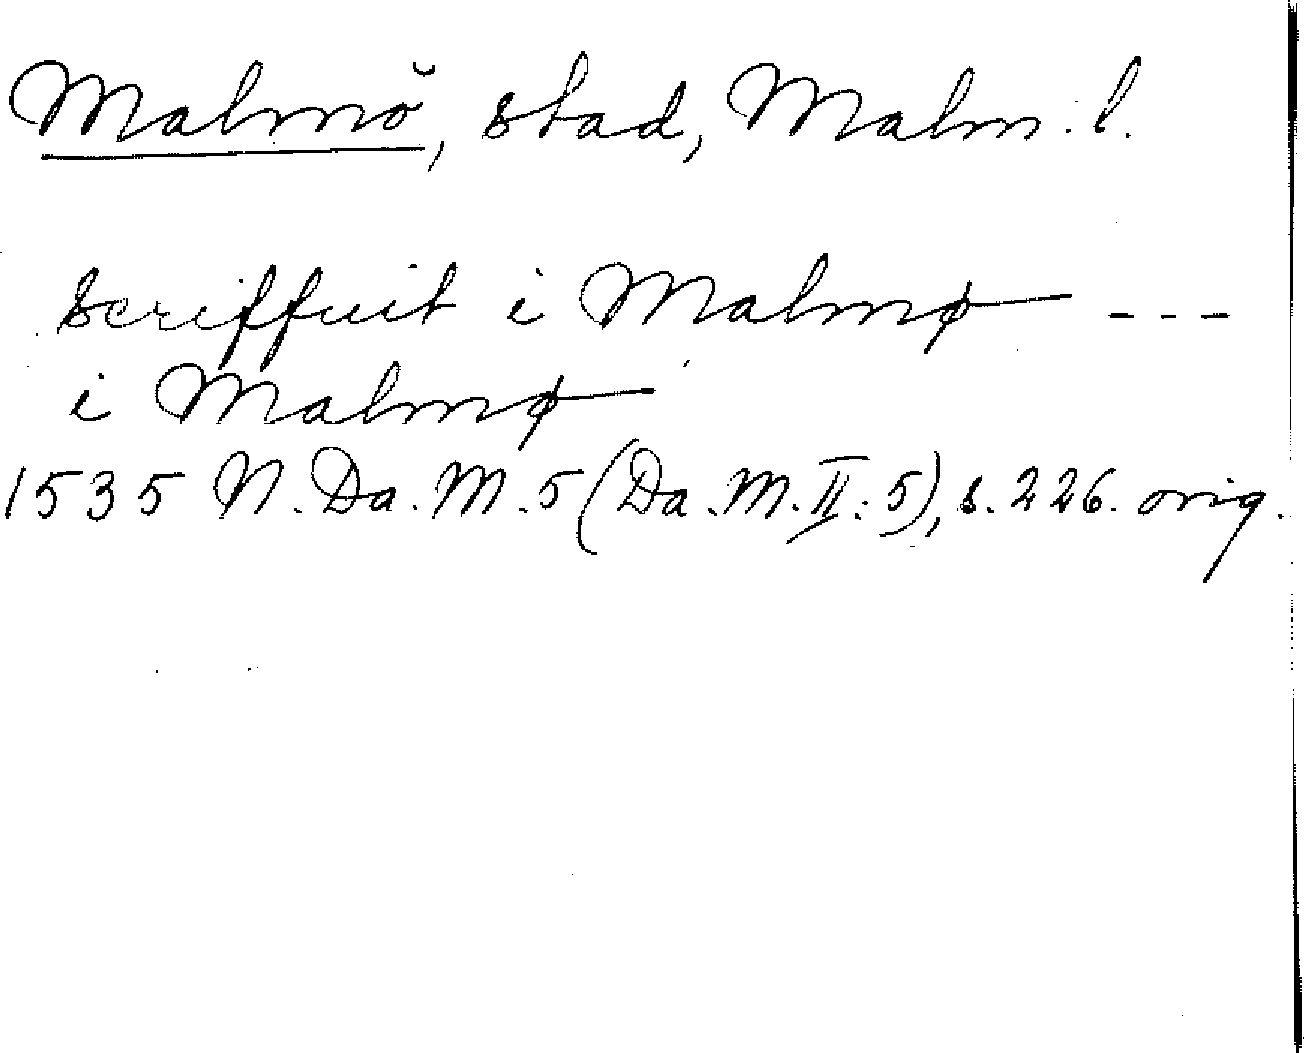 Malmö, stad, Malm. l.
scriffuit i Malmø ---
i Malmø
1535 N. Da. M. 5 (Da. M. II: 5), s. 226. orig.